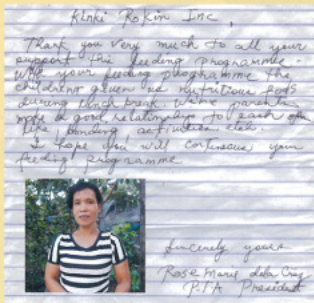 Kinki Rokin Inc,
Thank you very much to all your
support the feeding programme.
With your feeding programme the
children given us nutritious foods
during lunch break. We're parents
make a good relationships to each other
like bonding, activities, etc.
I hope you will continueous your
feeding programme
Sincerely yours
Rose Marie dela Cruz
P.T.A President